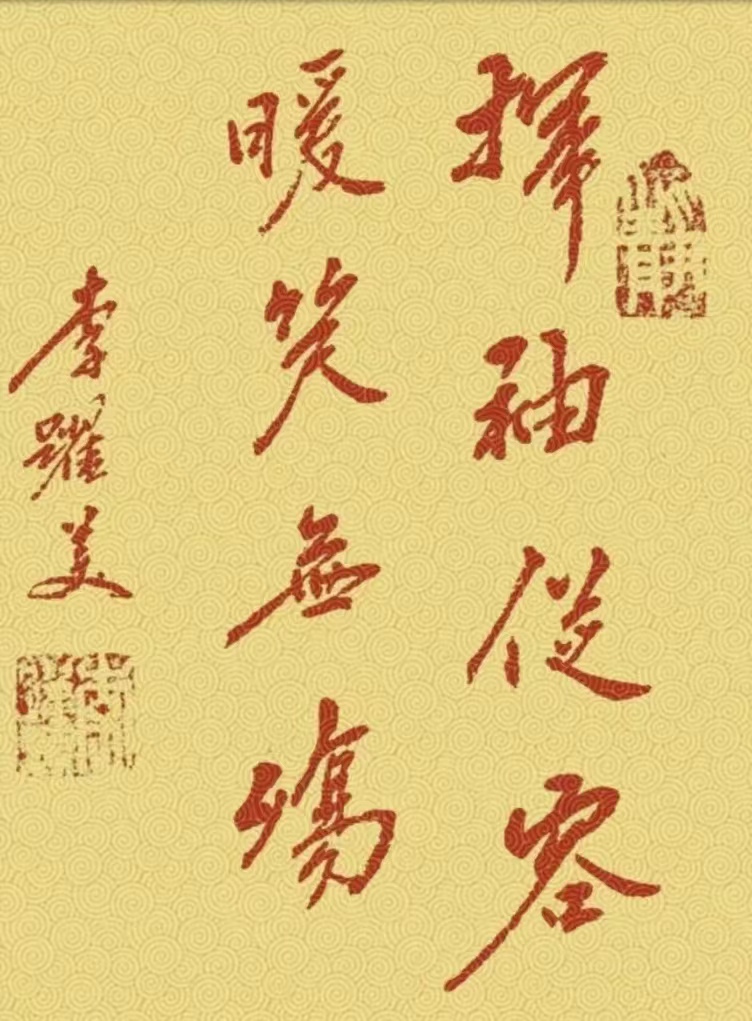 揮袖從容
暖笑無殤
李躍美